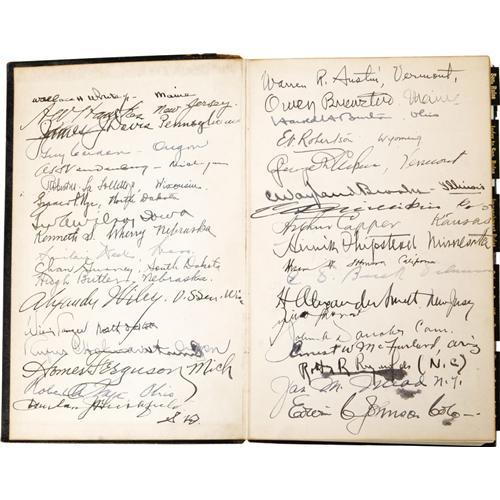 Wallace H White Jr - Maine
A W Hawkes New Jersey.
James J Davis Pennsylvania
Guy Cordon - Oregon
A H Vandenberg - Michigan
Robert M La Follette Jr. Wisconsin.
Gerald P. Nye, North Dakota
Iowa
Kenneth S. Wherry Nebraska
Mass.
Chan Gurney, South Dakota
Hugh Butler, Nebraska.
Alexander Wiley, U.S Sen. Wis
North Dakota
Rufus C Holman Oregon
Homer Ferguson Mich
Robert A Taft Ohio
Harlan J Bushfield
S.D.
Warren R. Austin, Vermont,
Owen Brewster, Maine
Harold H. Burton Ohio
EV Robertson Wyoming
George D. Aiken, Vermont
C Wayland Brooks - Illinois
Arthur Capper Kansas
Henrik Shipstead Minnesota
Hiram W. Johnson California
C. D. Buck Delaware
H Alexander Smith New Jersey
John A Danaher Conn.
Ernest W. McFarland, Ariz
Robt R Reynolds (N.C)
Jas. M. Mead N.Y.
Edwin C Johnson Colo